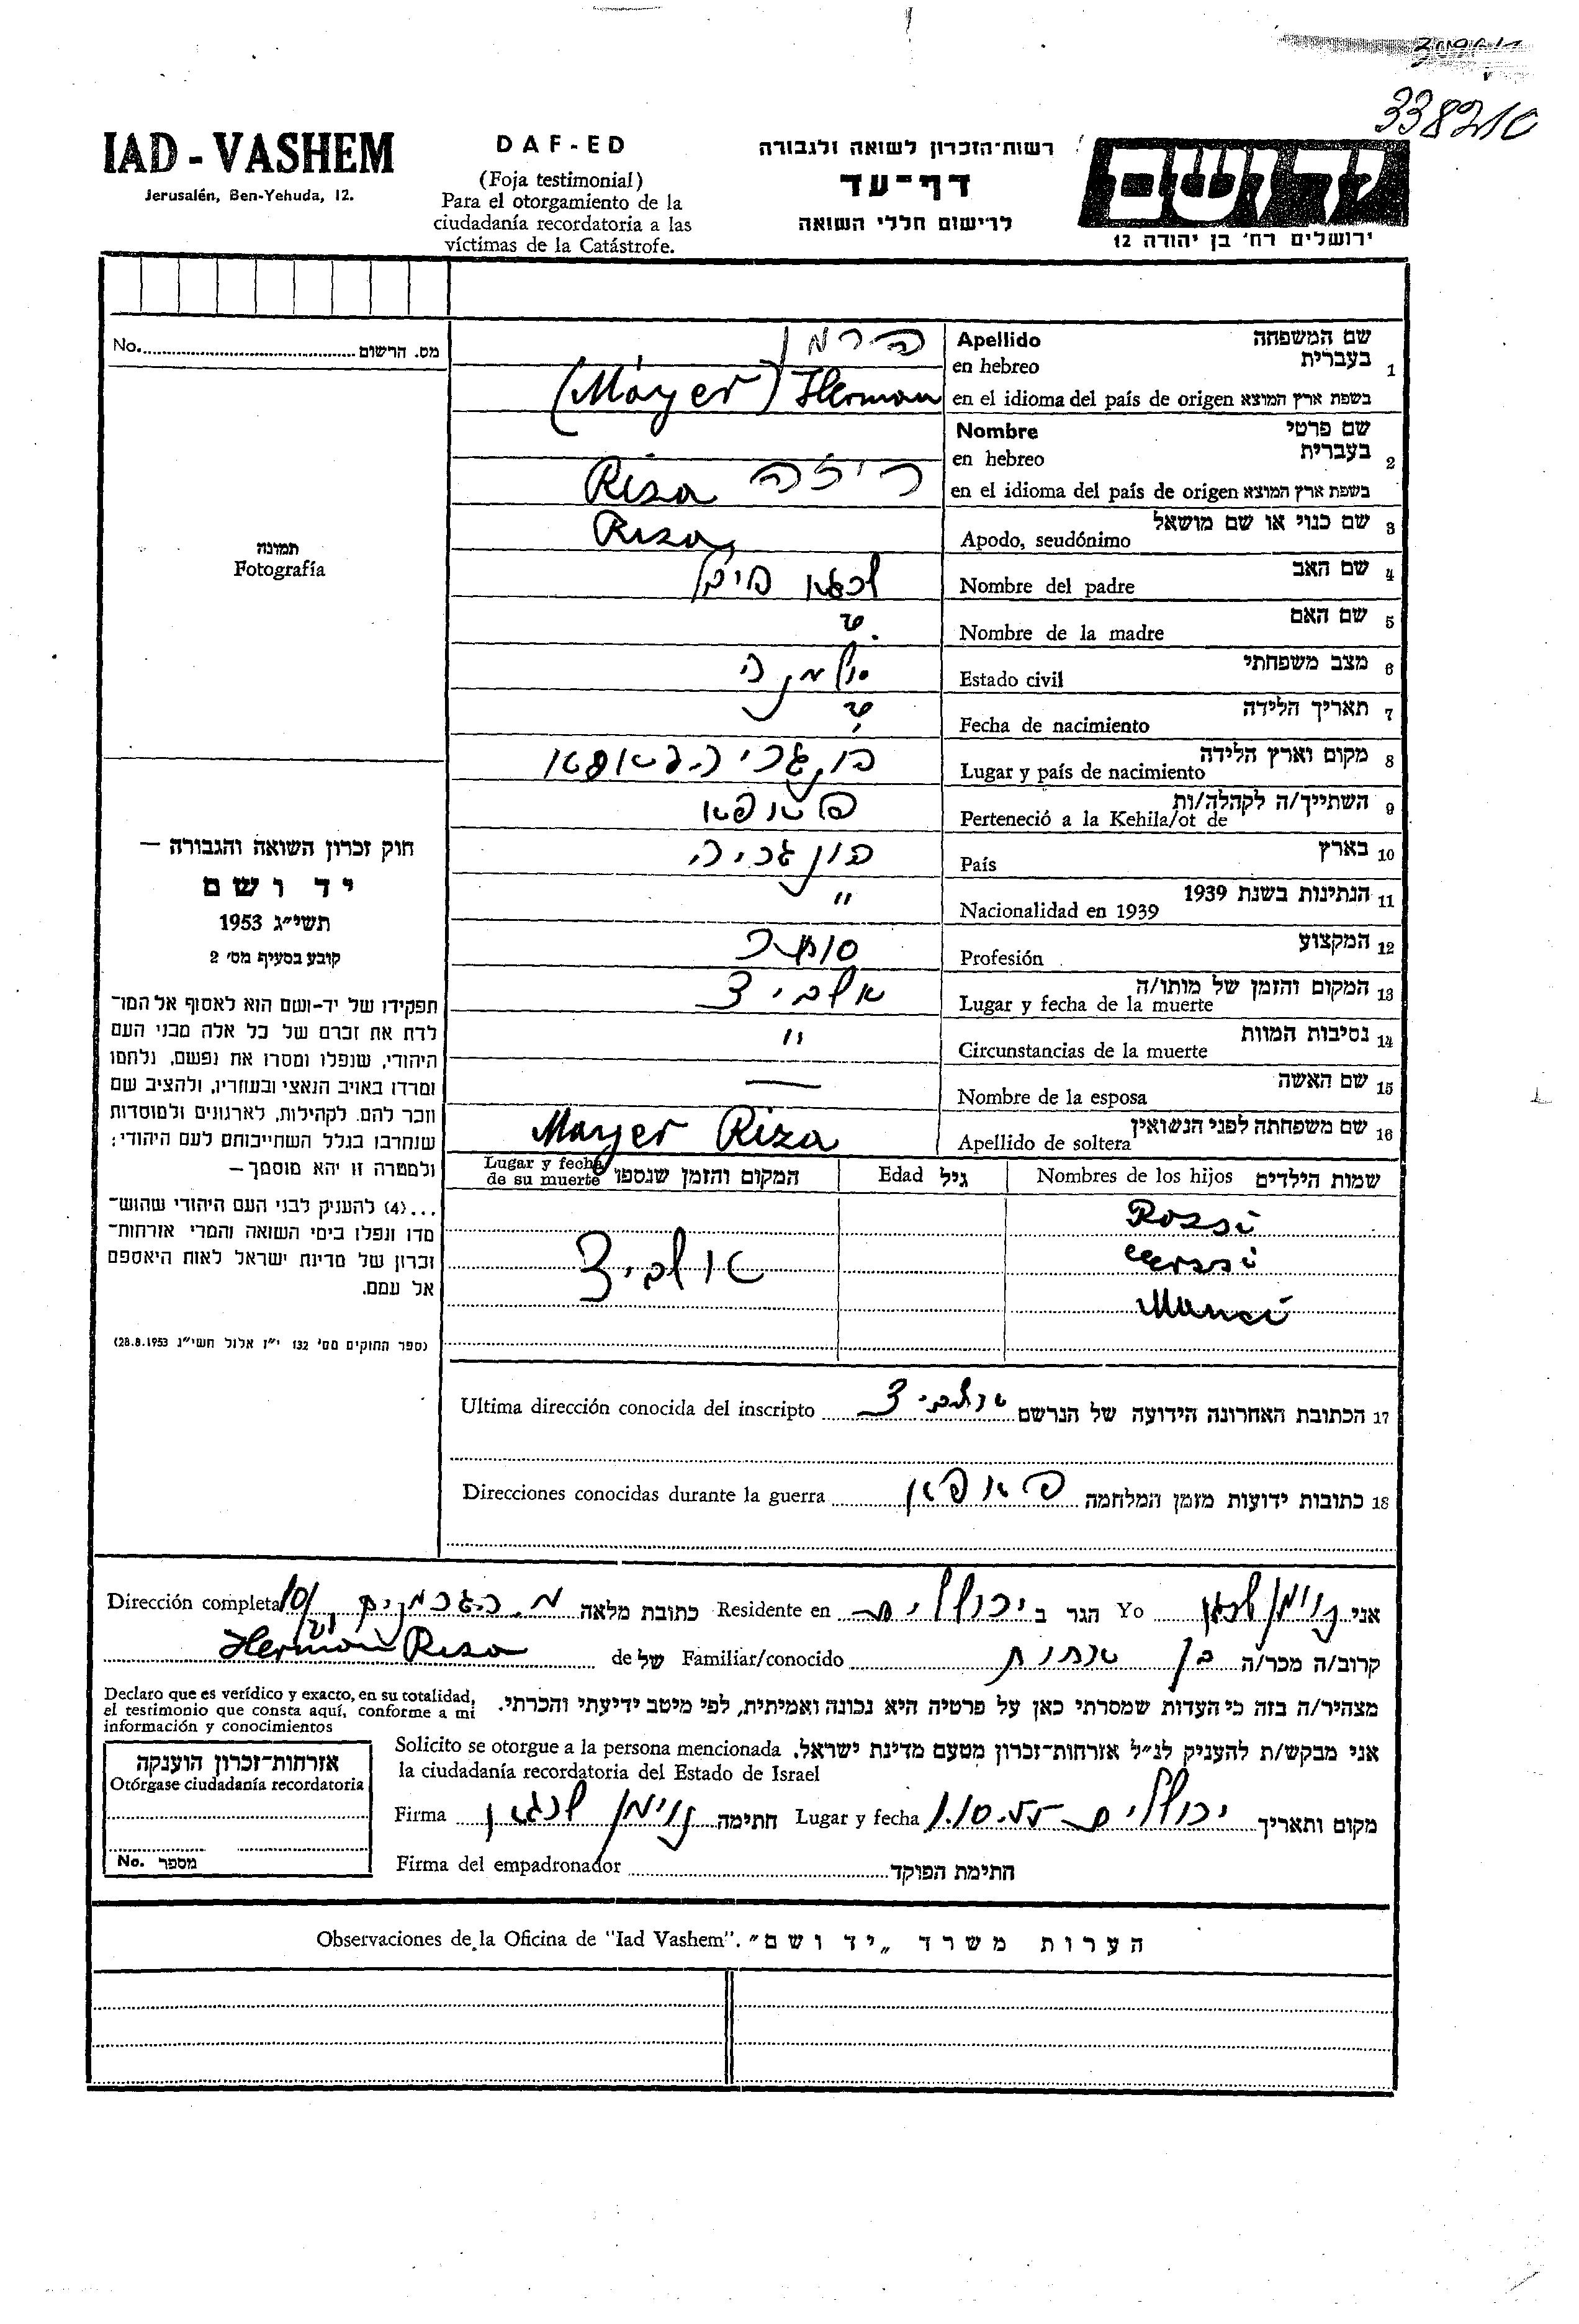 338210
IAD - VASHEM
Jerusalén, Ben-Yehuda, 12.
DAF-ED
(Foja testimonial)
Para el otorgamiento de la
ciudadanía recordatoria a las
víctimas de la Catástrofe.
רשות־הזכרון לשואה ולגבורה
דף־עד
לרישום חללי השואה
יד ושם
ירושלים רח' בן יהודה 12
No. מס. הרשום
תמונה
Fotografía
חוק זכרון השואה והגבורה —
יד ושם
תשי״ג 1953
קובע בסעיף מס' 2
תפקידו של יד-ושם הוא לאסוף אל המו־
לדת את זכרם של כל אלה מבני העם
היהודי, שנפלו ומסרו את נפשם, נלחמו
ומרדו באויב הנאצי ובעוזריו, ולהציב שם
וזכר להם, לקהילות, לארגונים ולמוסדות
שנחרבו בגלל השתייכותם לעם היהודי;
ולמטרה זו יהא מוסמך —
...(4) להעניק לבני העם היהודי שהוש־
מדו ונפלו בימי השואה והמרי אזרחות־
זכרון של מדינת ישראל לאות היאספם
אל עמם.
(ספר החוקים מס' 132 י״ז אלול תשי״ג 28.8.1953)
1 שם המשפחה Apellido
בעברית en hebreo הרמן
בשפת ארץ המוצא en el idioma del país de origen Herman (Máyer)
2 שם פרטי Nombre
בעברית en hebreo ריזה
בשפת ארץ המוצא en el idioma del país de origen Riza
3 שם כנוי או שם מושאל Apodo, seudónimo Riza
4 שם האב Nombre del padre
5 שם האם Nombre de la madre
6 מצב משפחתי Estado civil אלמנה
7 תאריך הלידה Fecha de nacimiento
8 מקום וארץ הלידה Lugar y país de nacimiento
9 השתייך/ה לקהלה/ות Perteneció a la Kehila/ot de פאפא
10 בארץ País הונגריה
11 הנתינות בשנת 1939 Nacionalidad en 1939 "
12 המקצוע Profesión סוחר
13 המקום והזמן של מותו/ה Lugar y fecha de la muerte אושביץ
14 נסיבות המוות Circunstancias de la muerte "
15 שם האשה Nombre de la esposa —
16 שם משפחתה לפני הנשואין Apellido de soltera Mayer Riza
שמות הילדים Nombres de los hijos גיל Edad המקום והזמן שנספו Lugar y fecha de su muerte
Rozsi
Manci
אושביץ
17 הכתובת האחרונה הידועה של הנרשם Ultima dirección conocida del inscripto אושביץ
18 כתובות ידועות מזמן המלחמה Direcciones conocidas durante la guerra פאפא
אני נוימן Yo הגר ב ירושלים Residente en כתובת מלאה Dirección completa
קרוב/ה מכר/ה בן אחות Familiar/conocido של de Herman Riza
מצהיר/ה בזה כי העדות שמסרתי כאן על פרטיה היא נכונה ואמיתית, לפי מיטב ידיעתי והכרתי.
Declaro que es verídico y exacto, en su totalidad,
el testimonio que consta aquí, conforme a mi
información y conocimientos
אני מבקש/ת להעניק לנ״ל אזרחות־זכרון מטעם מדינת ישראל. Solicito se otorgue a la persona mencionada
la ciudadanía recordatoria del Estado de Israel
מקום ותאריך ירושלים 1.10.55 Lugar y fecha חתימה נוימן Firma
חתימת הפוקד Firma del empadronador
אזרחות־זכרון הוענקה
Otórgase ciudadanía recordatoria
No. מספר
Observaciones de la Oficina de "Iad Vashem". הערות משרד „יד ושם"